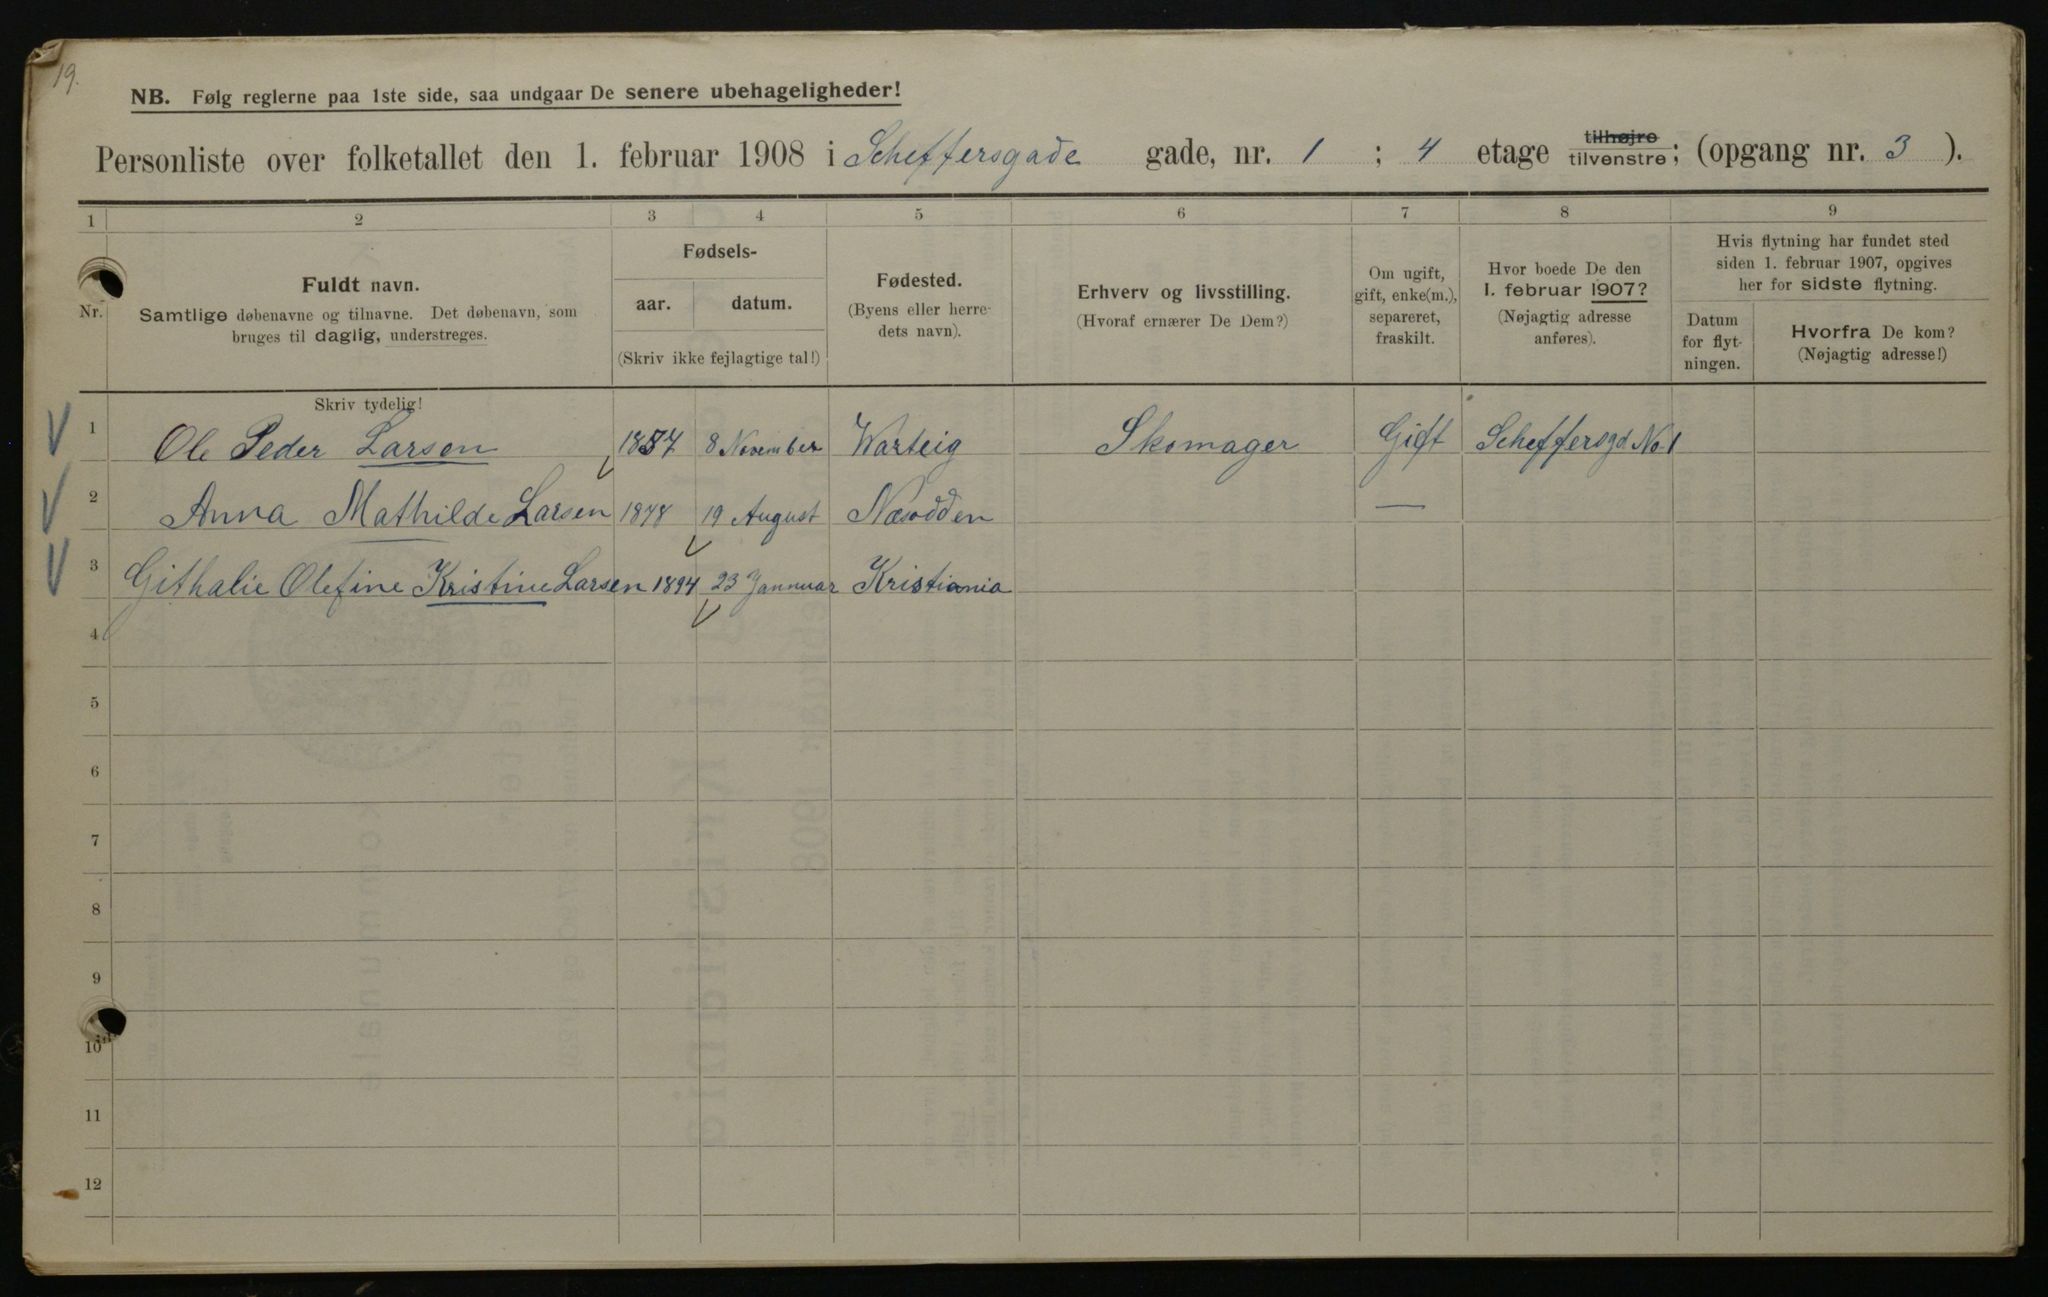 19.
NB. Følg reglerne paa 1ste side, saa undgaar De senere ubehageligheder!
Personliste over folketallet den 1. februar 1908 i Scheffersgade gade, nr. 1 ; 4 etage tilhøjre tilvenstre; (opgang nr. 3 ).
1 2 3 4 5 6 7 8 9
Nr.
Fuldt navn.
Samtlige døbenavne og tilnavne. Det døbenavn, som
bruges til daglig, understreges.
Skriv tydelig!
Fødsels-
aar. datum.
(Skriv ikke fejlagtige tal!)
Fødested.
(Byens eller herre-
dets navn).
Erhverv og livsstilling.
(Hvoraf ernærer De Dem?)
Om ugift,
gift, enke(m.),
separeret,
fraskilt.
Hvor boede De den
1. februar 1907?
(Nøjagtig adresse
anføres).
Hvis flytning har fundet sted
siden 1. februar 1907, opgives
her for sidste flytning.
Datum
for flyt-
ningen.
Hvorfra De kom?
(Nøjagtig adresse!)
1 Ole Peder Larsen 1857 8 November Warteig Skomager Gift Scheffersgd No 1
2 Anna Mathilde Larsen 1878 19 August Næsodden —
3 Githalie Olefine Kristine Larsen 1894 23 Jannuar Kristiania
4
5
6
7
8
9
10
11
12